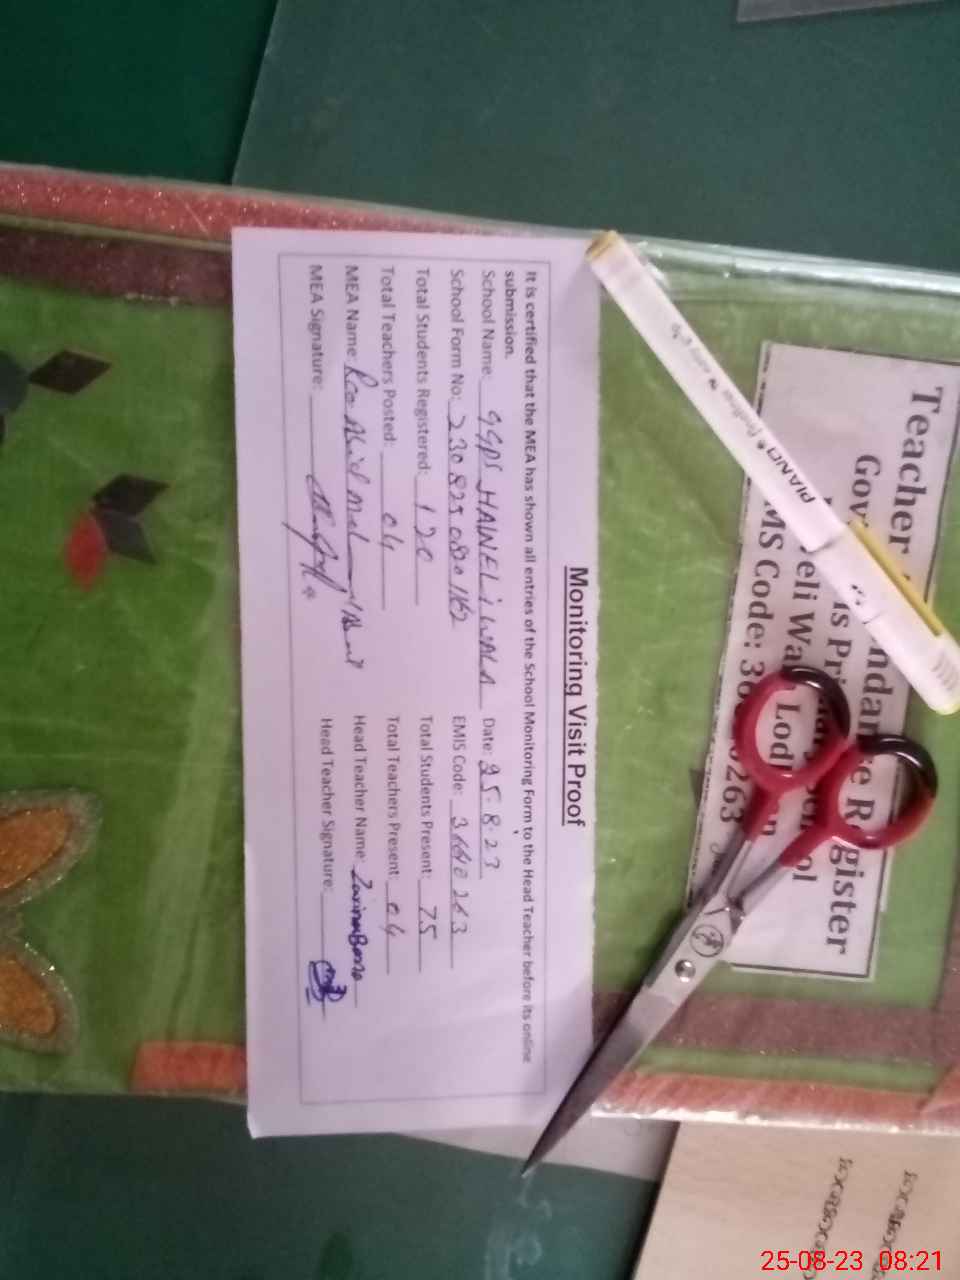 Monitoring Visit Proof
It is certified that the MEA has shown all entries of the School Monitoring Form to the Head Teacher before its online
submission.
School Name: GGPS HAWELI WALA Date: 25.8.23
School Form No: EMIS Code: 36610263
Total Students Registered: 120 Total Students Present: 75
Total Teachers Posted: 04 Total Teachers Present: 04
MEA Name: Rao Abid Head Teacher Name: Zarina
MEA Signature: Head Teacher Signature:
Teacher Register
eli Wa Lod
MS Code: 36 0263
PIANO
25-08-23 08:21